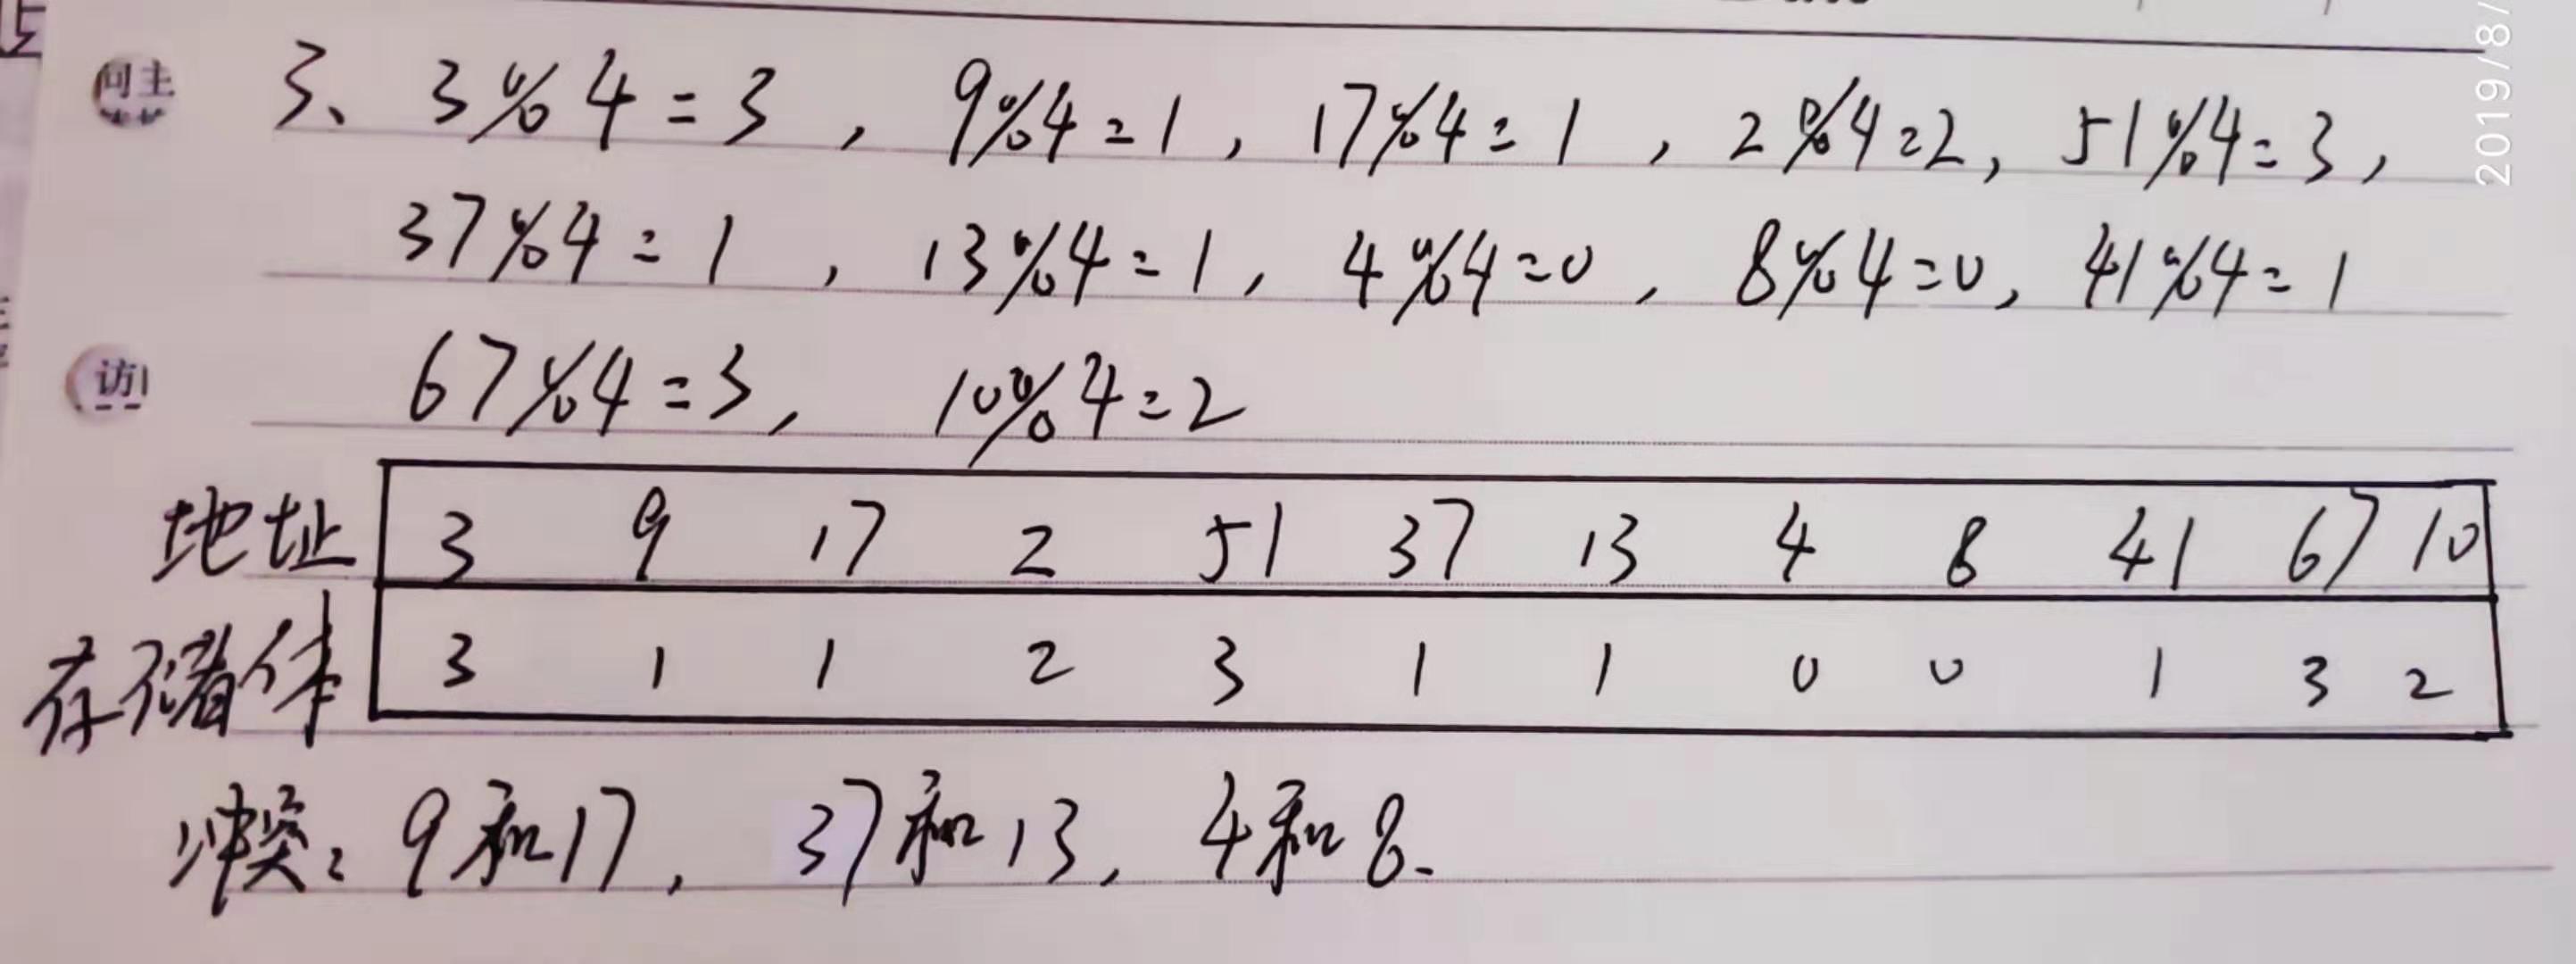 2019/8/
3、3%4=3，9%4=1，17%4=1，2%4=2，51%4=3，
37%4=1，13%4=1，4%4=0，8%4=0，41%4=1
访
67%4=3，10%4=2
地址 3 9 17 2 51 37 13 4 8 41 67 10
存储体 3 1 1 2 3 1 1 0 0 1 3 2
冲突：9和17，37和13，4和8.